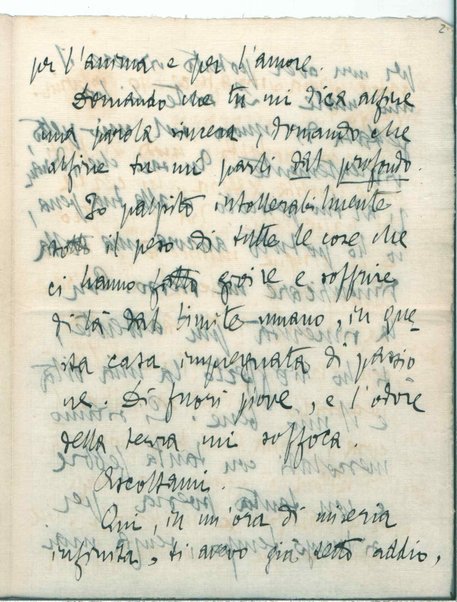 2
per l'anima e per l'amore.
Domando che tu mi dica alfine
una parola sincera, domando che
alfine tu mi parli dal profondo.
Io palpito intollerabilmente
sotto il peso di tutte le cose che
ci hanno fatto gioire e soffrire
di là dal limite umano, in que
sta casa impregnata di passio
ne. Di fuori piove, e l'odore
della terra mi soffoca.
Ascoltami.
Qui, in un'ora di miseria
infinita, ti avevo già detto addio,